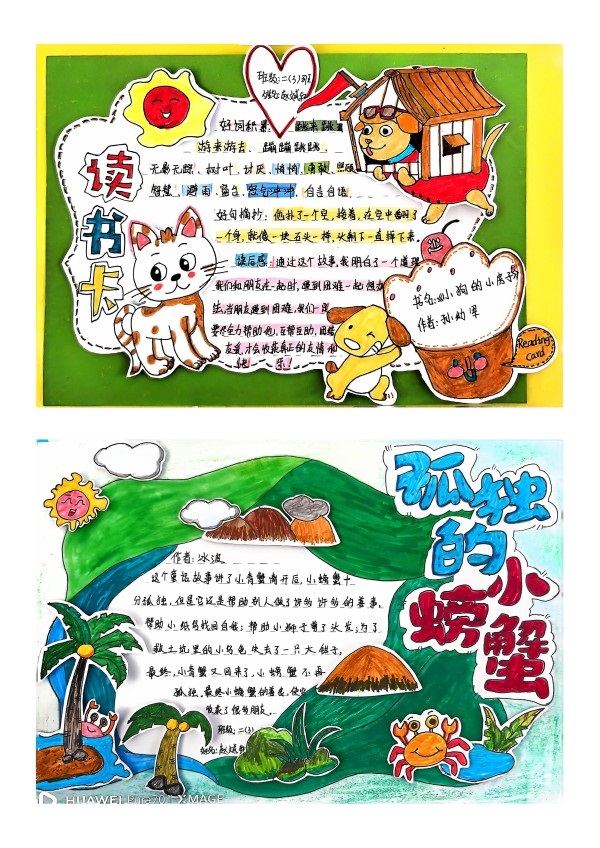 班级:二(3)班
读书卡
好词积累: 跳来跳
游来游去、蹦蹦跳跳
无影无踪、树叶、讨厌、悄悄、勇敢、
避雨、窗台、自言自语
好句摘抄:他扑了个空,接着,在空中翻了
一个身,就像一块石头一样,头朝下一直掉下来。
读后感:通过这个故事,我明白了一个道理
我们和朋友在一起时,遇到困难一起想办
法,当朋友遇到困难,我们一
要尽全力帮助他,互帮互助,团结
友爱,才会收获真正的友情和
快乐!
书名:《小狗的小房子》
作者:孙幼军
Reading Card
孤独的小螃蟹
作者:冰波
这个童话故事讲了小青蟹离开后,小螃蟹十
分孤独,但是它还是帮助别人做了许多许多的善事,
帮助小纸鸟找回自我;帮助小狮子剪了头发;为了
救土坑里的小乌龟失去了一只大钳子,
最终,小青蟹又回来了,小螃蟹不再
孤独,最终小螃蟹的善意,使它
收获了很多朋友。
班级:二(3)
HUAWEI P XMAGE